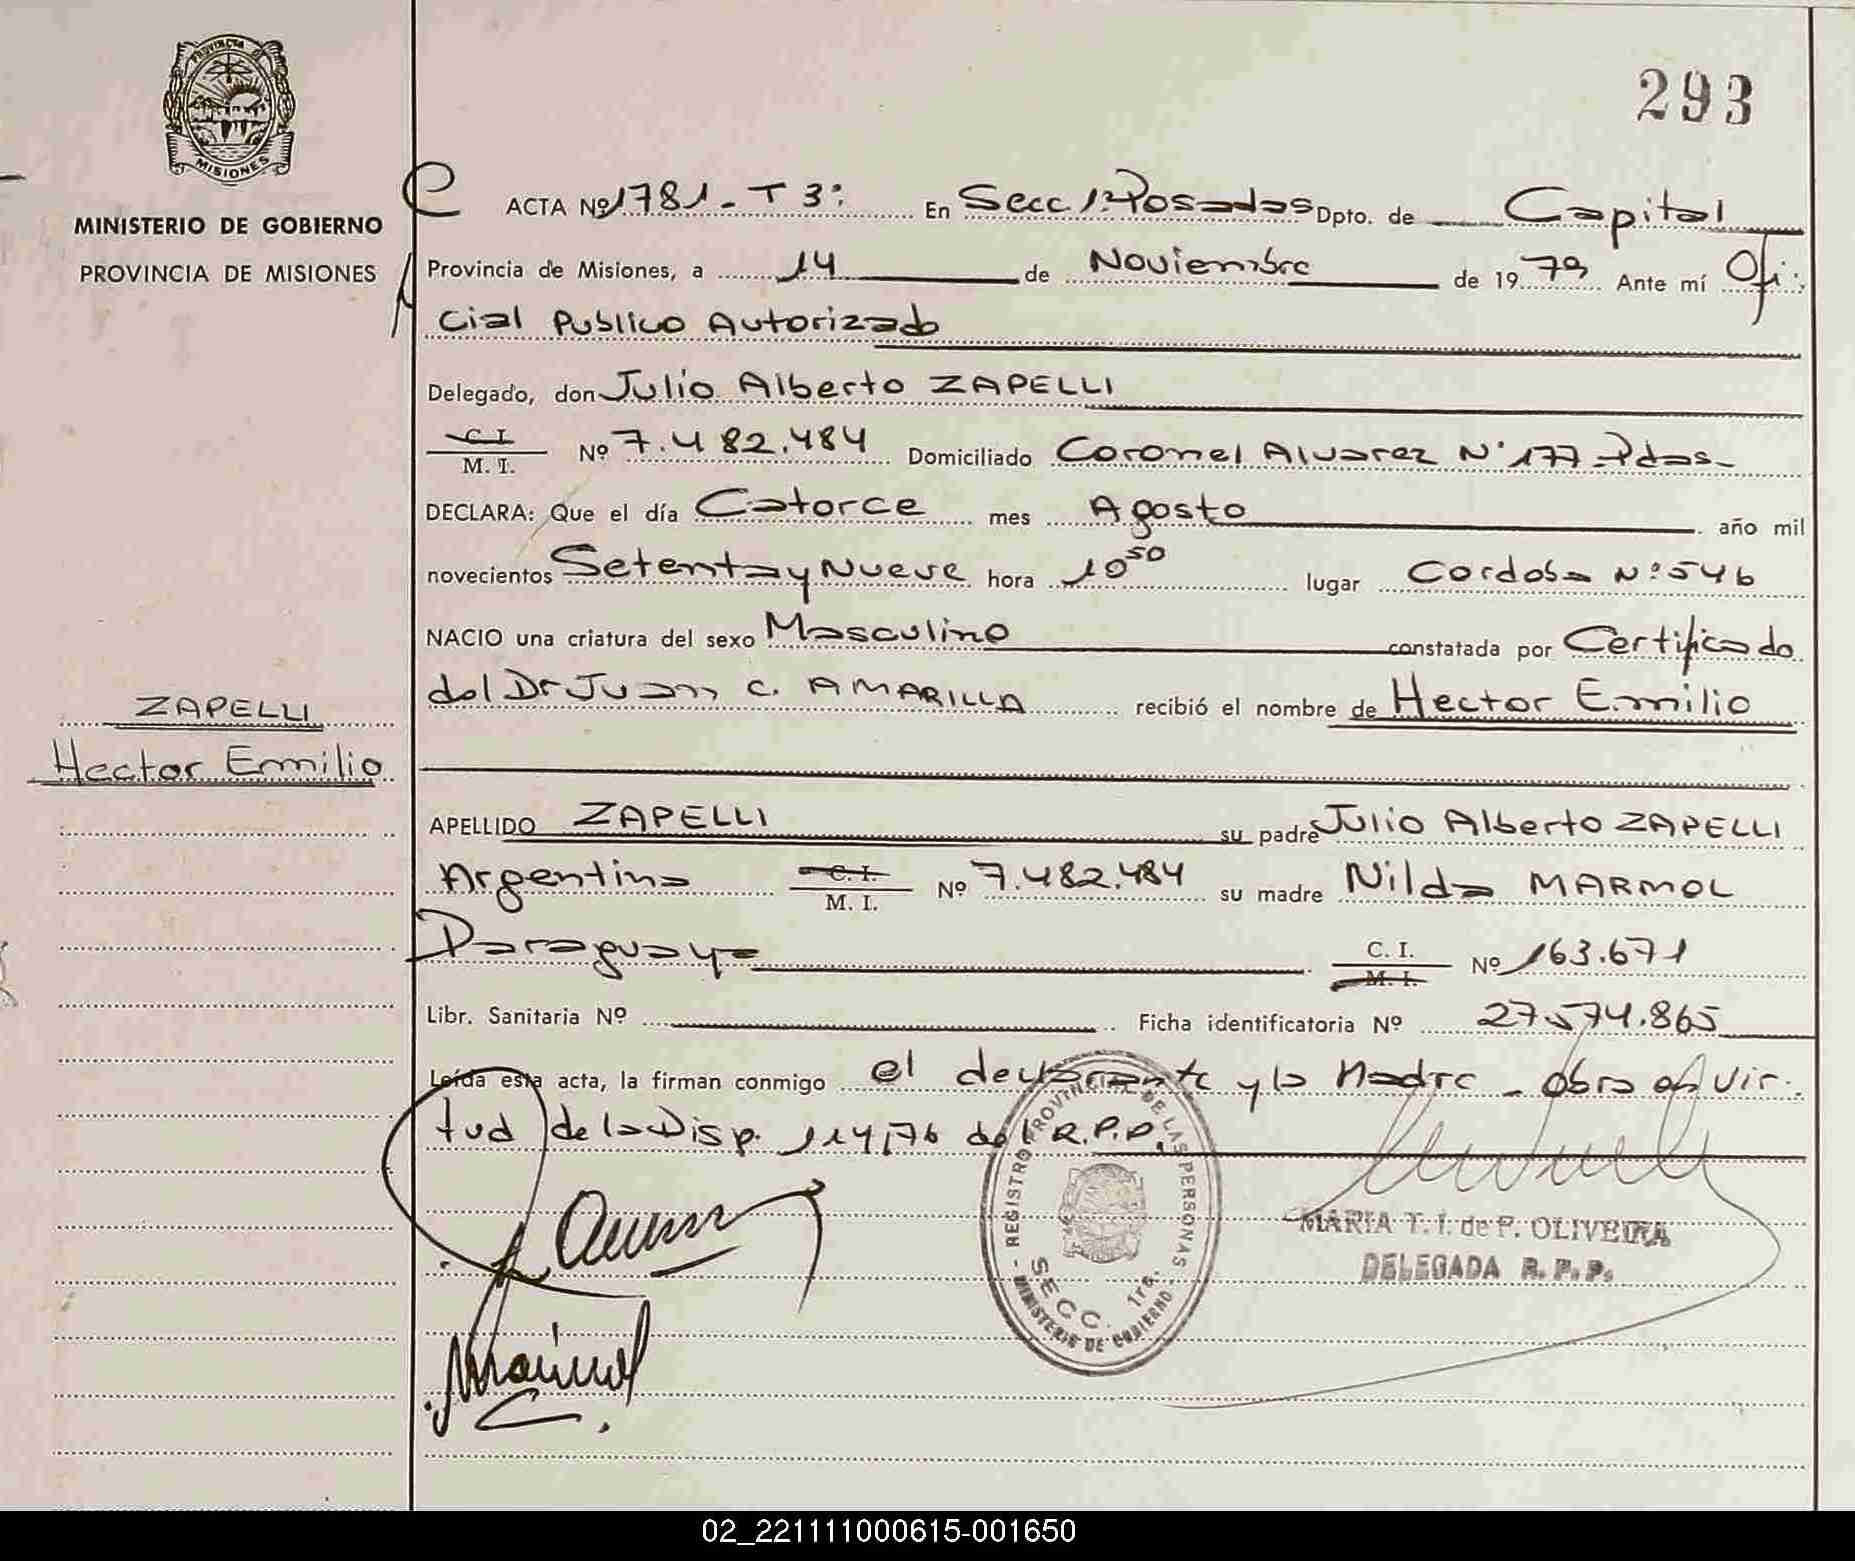 PROVINCIA DE
MISIONES
MINISTERIO DE GOBIERNO
PROVINCIA DE MISIONES
ZAPELLI
Hector Emilio
293
ACTA Nº 1781 - T 3: En Secc 1ª Posadas Dpto. de Capital
Provincia de Misiones, a 14 de Noviembre de 1979 Ante mí Ofi-
cial Publico Autorizado
Delegado, don Julio Alberto ZAPELLI
C.I. / M.I. Nº 7.482.484 Domiciliado Coronel Alvarez Nº 177 - Pdas -
DECLARA: Que el día Catorce mes Agosto año mil
novecientos Setenta y Nueve hora 10 50 lugar Cordoba Nº 546
NACIO una criatura del sexo Masculino constatada por Certificado
del Dr Juan C. AMARILLA recibió el nombre de Hector Emilio
APELLIDO ZAPELLI su padre Julio Alberto ZAPELLI
Argentina C.I. / M.I. Nº 7.482.484 su madre Nilda MARMOL
Paraguaya C.I. / M.I. Nº 163.671
Libr. Sanitaria Nº Ficha identificatoria Nº 27.574.865
Leída esta acta, la firman conmigo el declarante y la Madre - obra en vir-
tud de la Disp. 114/76 del R.P.P.
REGISTRO PROVINCIAL DE LAS PERSONAS
SECC. 1ra.
MINISTERIO DE GOBIERNO
MARIA T. I. de P. OLIVEIRA
DELEGADA R. P. P.
Marmol
02_221111000615-001650